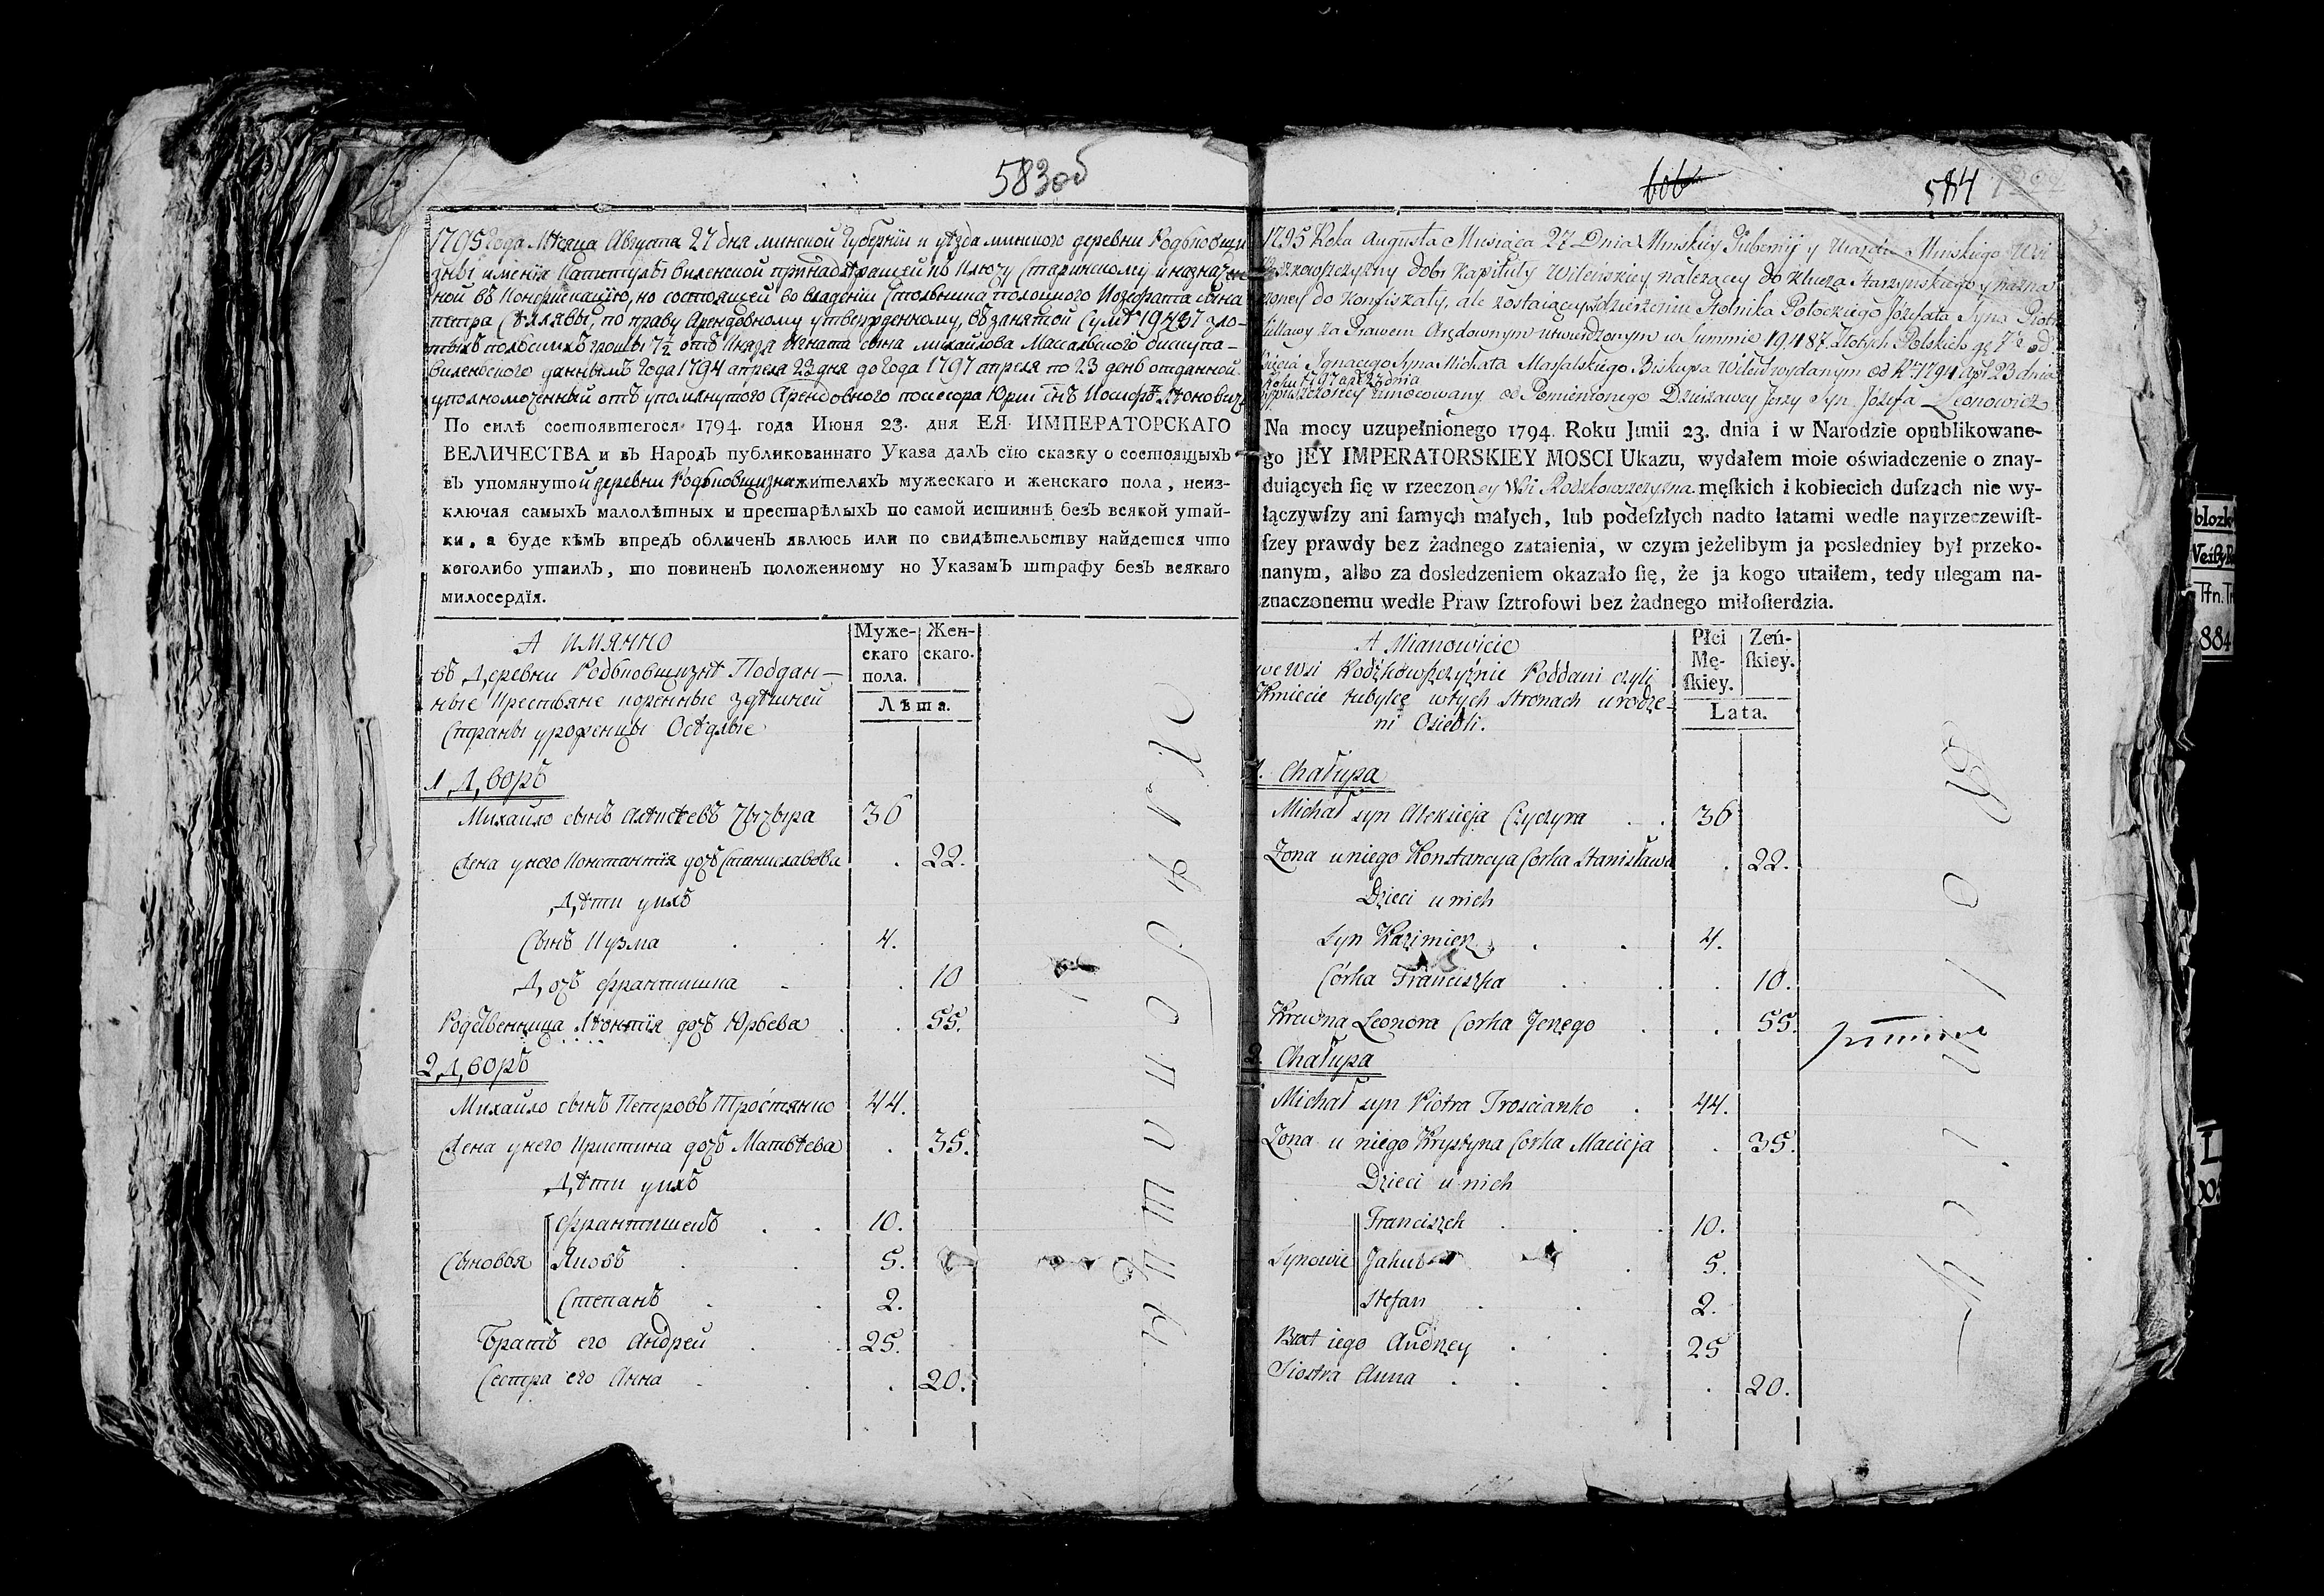 583об
1795 года Мѣсяца Августа 27 дня минской Губернїи и уѣзда минского деревни Родьковщи
зны имѣнїя Капитулы виленской принадлежащей къ Ключу Старинскому и назначен
ной въ Конфискацїю, но состоящей во владенїи Стольника полоцкого Иозефата сына
петра Сѣллявы, по праву Арендовному утвержденному, въ занятой Сумѣ 19487 зло-
тыхъ польскихъ гроши 7½ отъ Князя Игната сына михайлова Массальского бискупа
виленского даннымъ года 1794 апреля 23 дня до года 1797 апреля по 23 день отданной
уполномоченный отъ упомянутого Арендовного посесора Юрїи снъ Иосифъ Леоновичъ
По силѣ состоявшегося 1794. года Июня 23. дня ЕЯ ИМПЕРАТОРСКАГО
ВЕЛИЧЕСТВА и въ Народъ публикованнаго Указа далъ сїю сказку о состоящыхъ
въ упомянутой деревни Родьковщизна жителяхъ мужескаго и женскаго пола, неиз-
ключая самыхъ малолѣтныхъ и престарѣлыхъ по самой истиннѣ безъ всякой утай-
ки, а буде кѣмъ впредъ обличенъ явлюсь или по свидѣтельству найдется что
коголибо утаилъ, то повиненъ положенному по Указамъ штрафу безъ всякаго
милосердїя.
А имянно
въ Деревни Родьковщизнѣ Поддан-
ные Крестьяне коренные здѣшней
Страны уроженцы Осѣдлые
Муже-
скаго
пола.
Жен-
скаго.
Лѣта.
1 Дворъ
Михайло сынъ Алѣксѣевъ Чычыра 36
Жена у него Констанцїя дочь Станиславова . 22.
Дѣти у ихъ
Сынъ Кузма . . 4.
Дочь Франтишка . . 10
Родственница Леонтїя дочь Юрьева . . 55.
2 Дворъ
Михайло сынъ Петровъ Тростянко 44.
Жена у него Кристина дочь Матвѣева . 35.
Дѣти у ихъ
Сыновья
Франтишекъ . . 10.
Яковъ . . 5.
Степанъ . . 2.
Братъ его Андрей . . 25.
Сестра его Анна . . . 20.
606
584
1795 Roku Augusta Miesiąca 27 Dnia Minskiey Gubernij y Uiazdu Minskiego Wsi
Rodzkowszczyzny dobr Kapituły Wileńskiey należącey do klucza Starzynskiego y nazna
czoney do konfiskaty, ale zostaiącey w dzierżeniu Stolnika Połockiego Józefata Syna Piotra
Sillawy za Prawem Arędownym utwierdzonym w Summie 19,487 Złotych Polskich gr 7½ od
Xięcia Ignacego Syna Michała Massalskiego Biskupa Wileń wydanym od Ru 1794 apr 23 dnia
do Roku 1797 apr 23 dnia
wypuszczoney umocowany od Pomienionego Dzierżawcy Jerzy Syn Józefa Leonowicz
Na mocy uzupełnionego 1794 Roku Junii 23. dnia i w Narodzie opublikowane-
go JEY IMPERATORSKIEY MOSCI Ukazu, wydałem moie oświadczenie o znay-
duiących ſię w rzeczoney Wsi Rodzkowszczyzna męſkich i kobiecich duſzach nie wy-
łączywſzy ani ſamych małych, lub podeſzłych nadto latami wedle nayrzeczewiſt-
ſzey prawdy bez żadnego zataienia, w czym jeżelibym ja posledniey był przeko-
nanym, albo za dosledzeniem okazało ſię, że ja kogo utaiłem, tedy ulegam na-
znaczonemu wedle Praw ſztrofowi bez żadnego miłoſierdzia.
A Mianowicie
we Wsi Rodźkowszczyźnie Poddani czyli
Kmiecie tubylcę w tych Stronach urodze-
ni Osiedli.
Płci
Mę-
ſkiey.
Zeń-
ſkiey.
Lata.
1. Chałupa
Michał syn Alekseja Czyczyra . . 36
Zona u niego Konstancya Corka Stanisława . 22.
Dzieci u nich
Syn Kazimierz . . 4.
Córka Franciszka . . . 10.
Krewna Leonora Corka Jerzego . . 55.
2 Chałupa
Michał syn Piotra Troscianko . 44.
Zona u niego Krystyna Corka Macieja . 35.
Dzieci u nich
Synowie
Franciszek . . 10.
Jakub . 5.
Stefan . . 2.
Brat iego Andrzey . . 25
Siostra Anna . . . . 20.